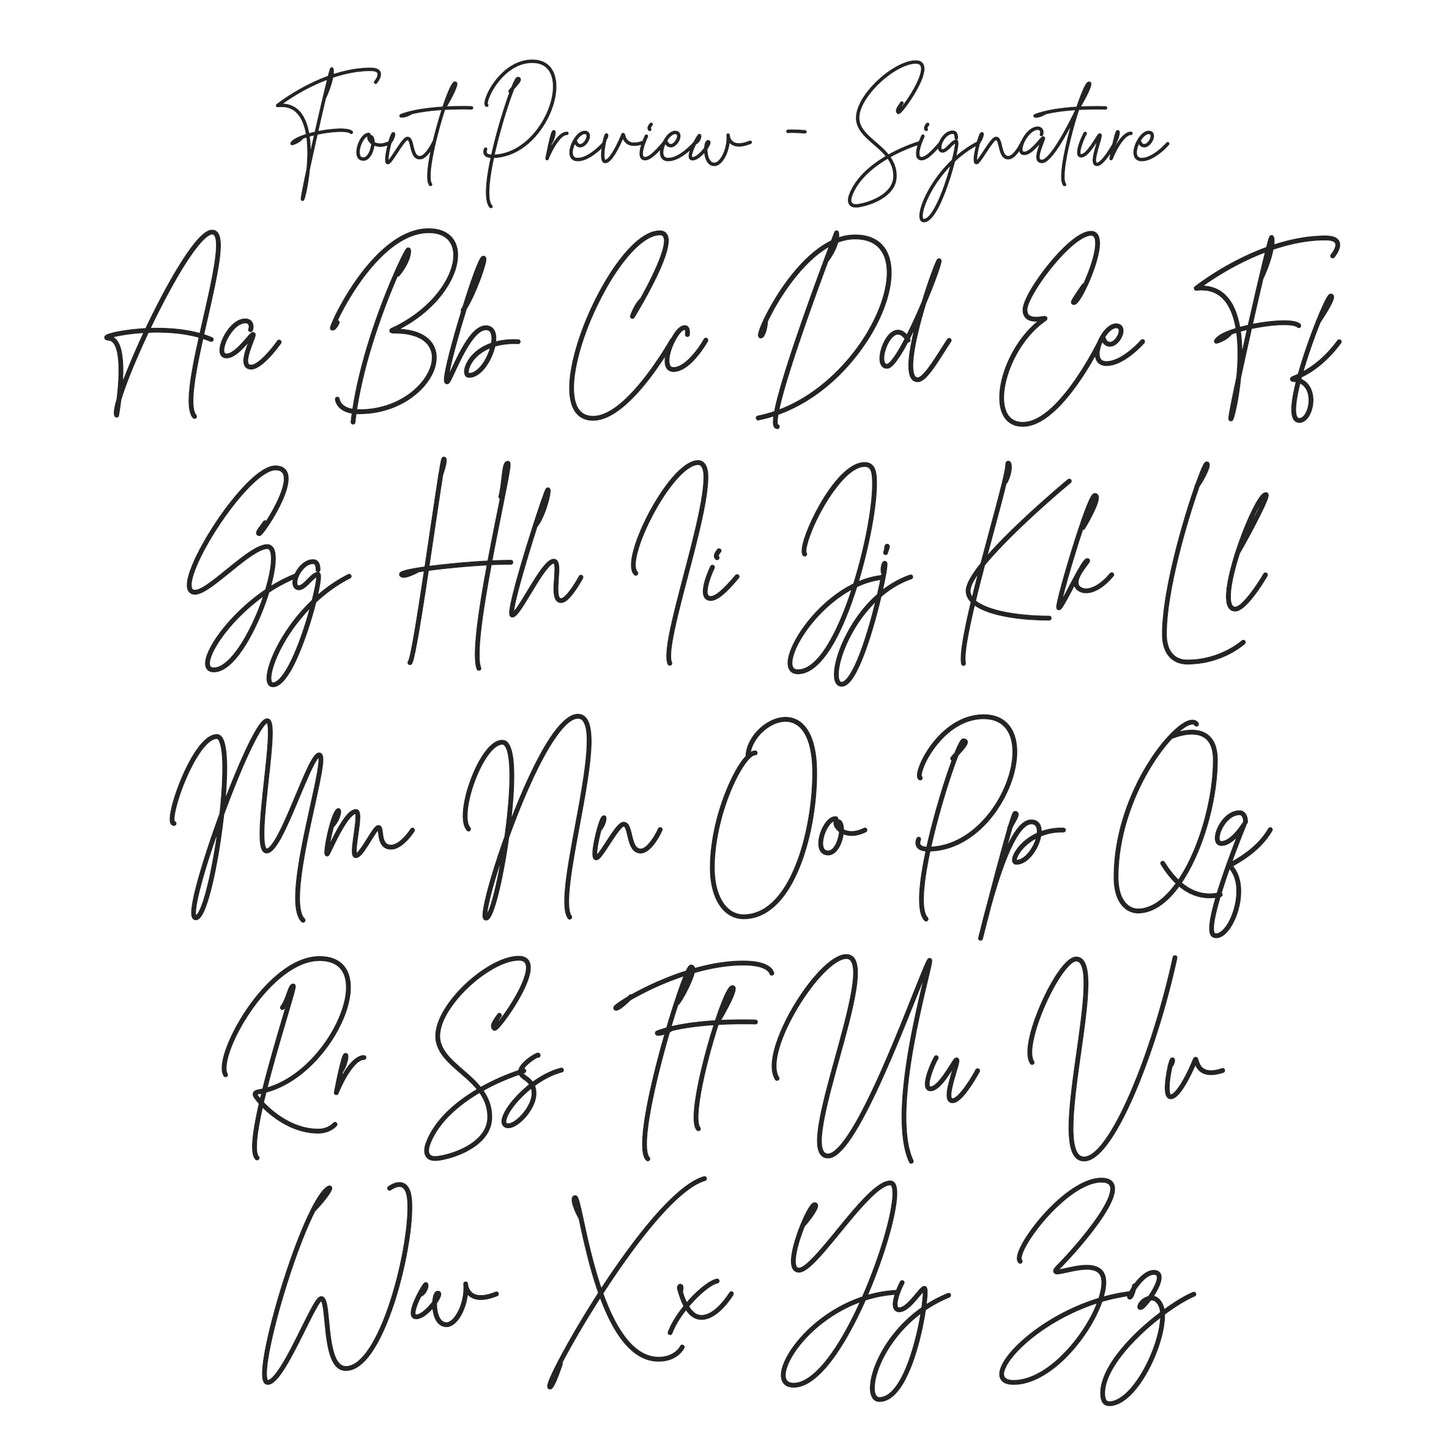 Font Preview - Signature
Aa Bb Cc Dd Ee Ff
Gg Hh Ii Jj Kk Ll
Mm Nn Oo Pp Qq
Rr Ss Tt Uu Vv
Ww Xx Yy Zz